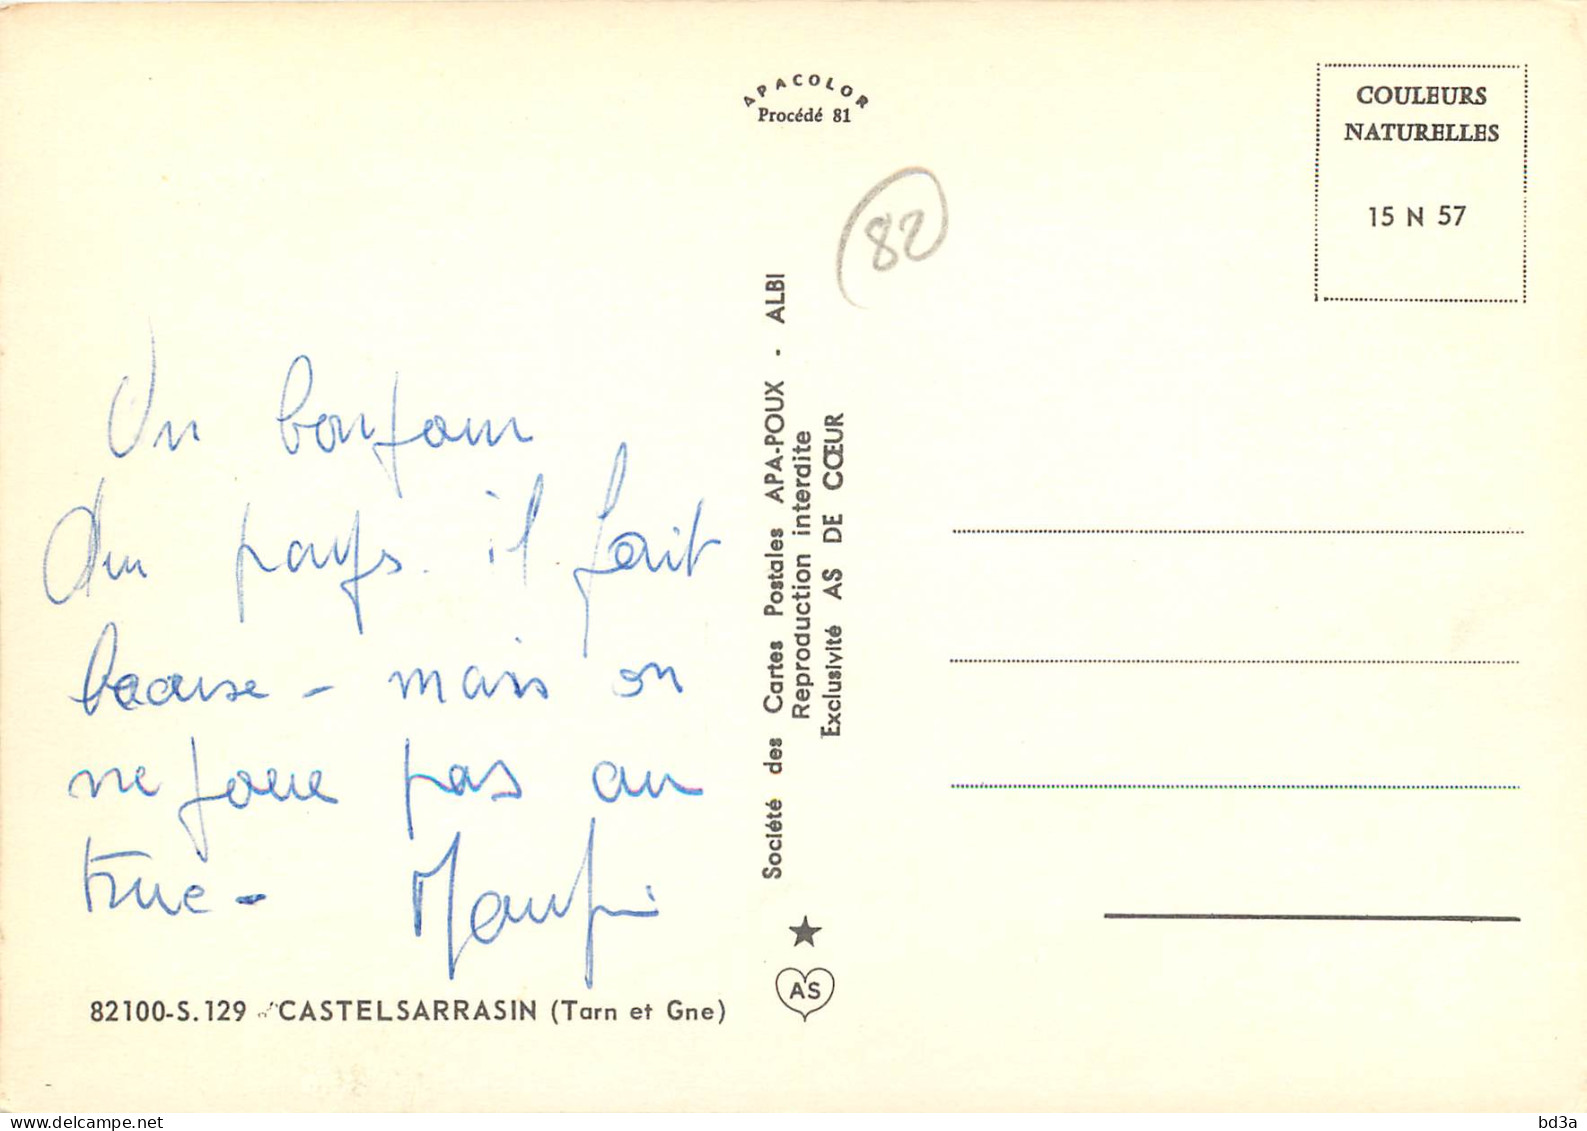 APACOLOR
Procédé 81
COULEURS
NATURELLES
15 N 57
82
Un bonjour
du pays. il fait
- mais on
ne joue pas au
truc -
Société des Cartes Postales APA-POUX - ALBI
Reproduction interdite
Exclusivité AS DE CŒUR
AS
82100-S.129 CASTELSARRASIN (Tarn et Gne)
bd3a